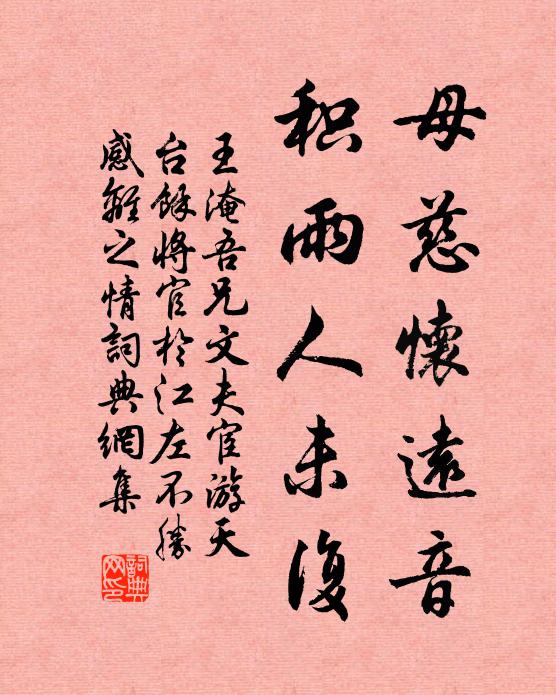 母慈懷遠音
积雨人未復
王淹吾兄文夫宦游天
台餘將官於江左不勝
感離之情詞典網集
詞典
网印